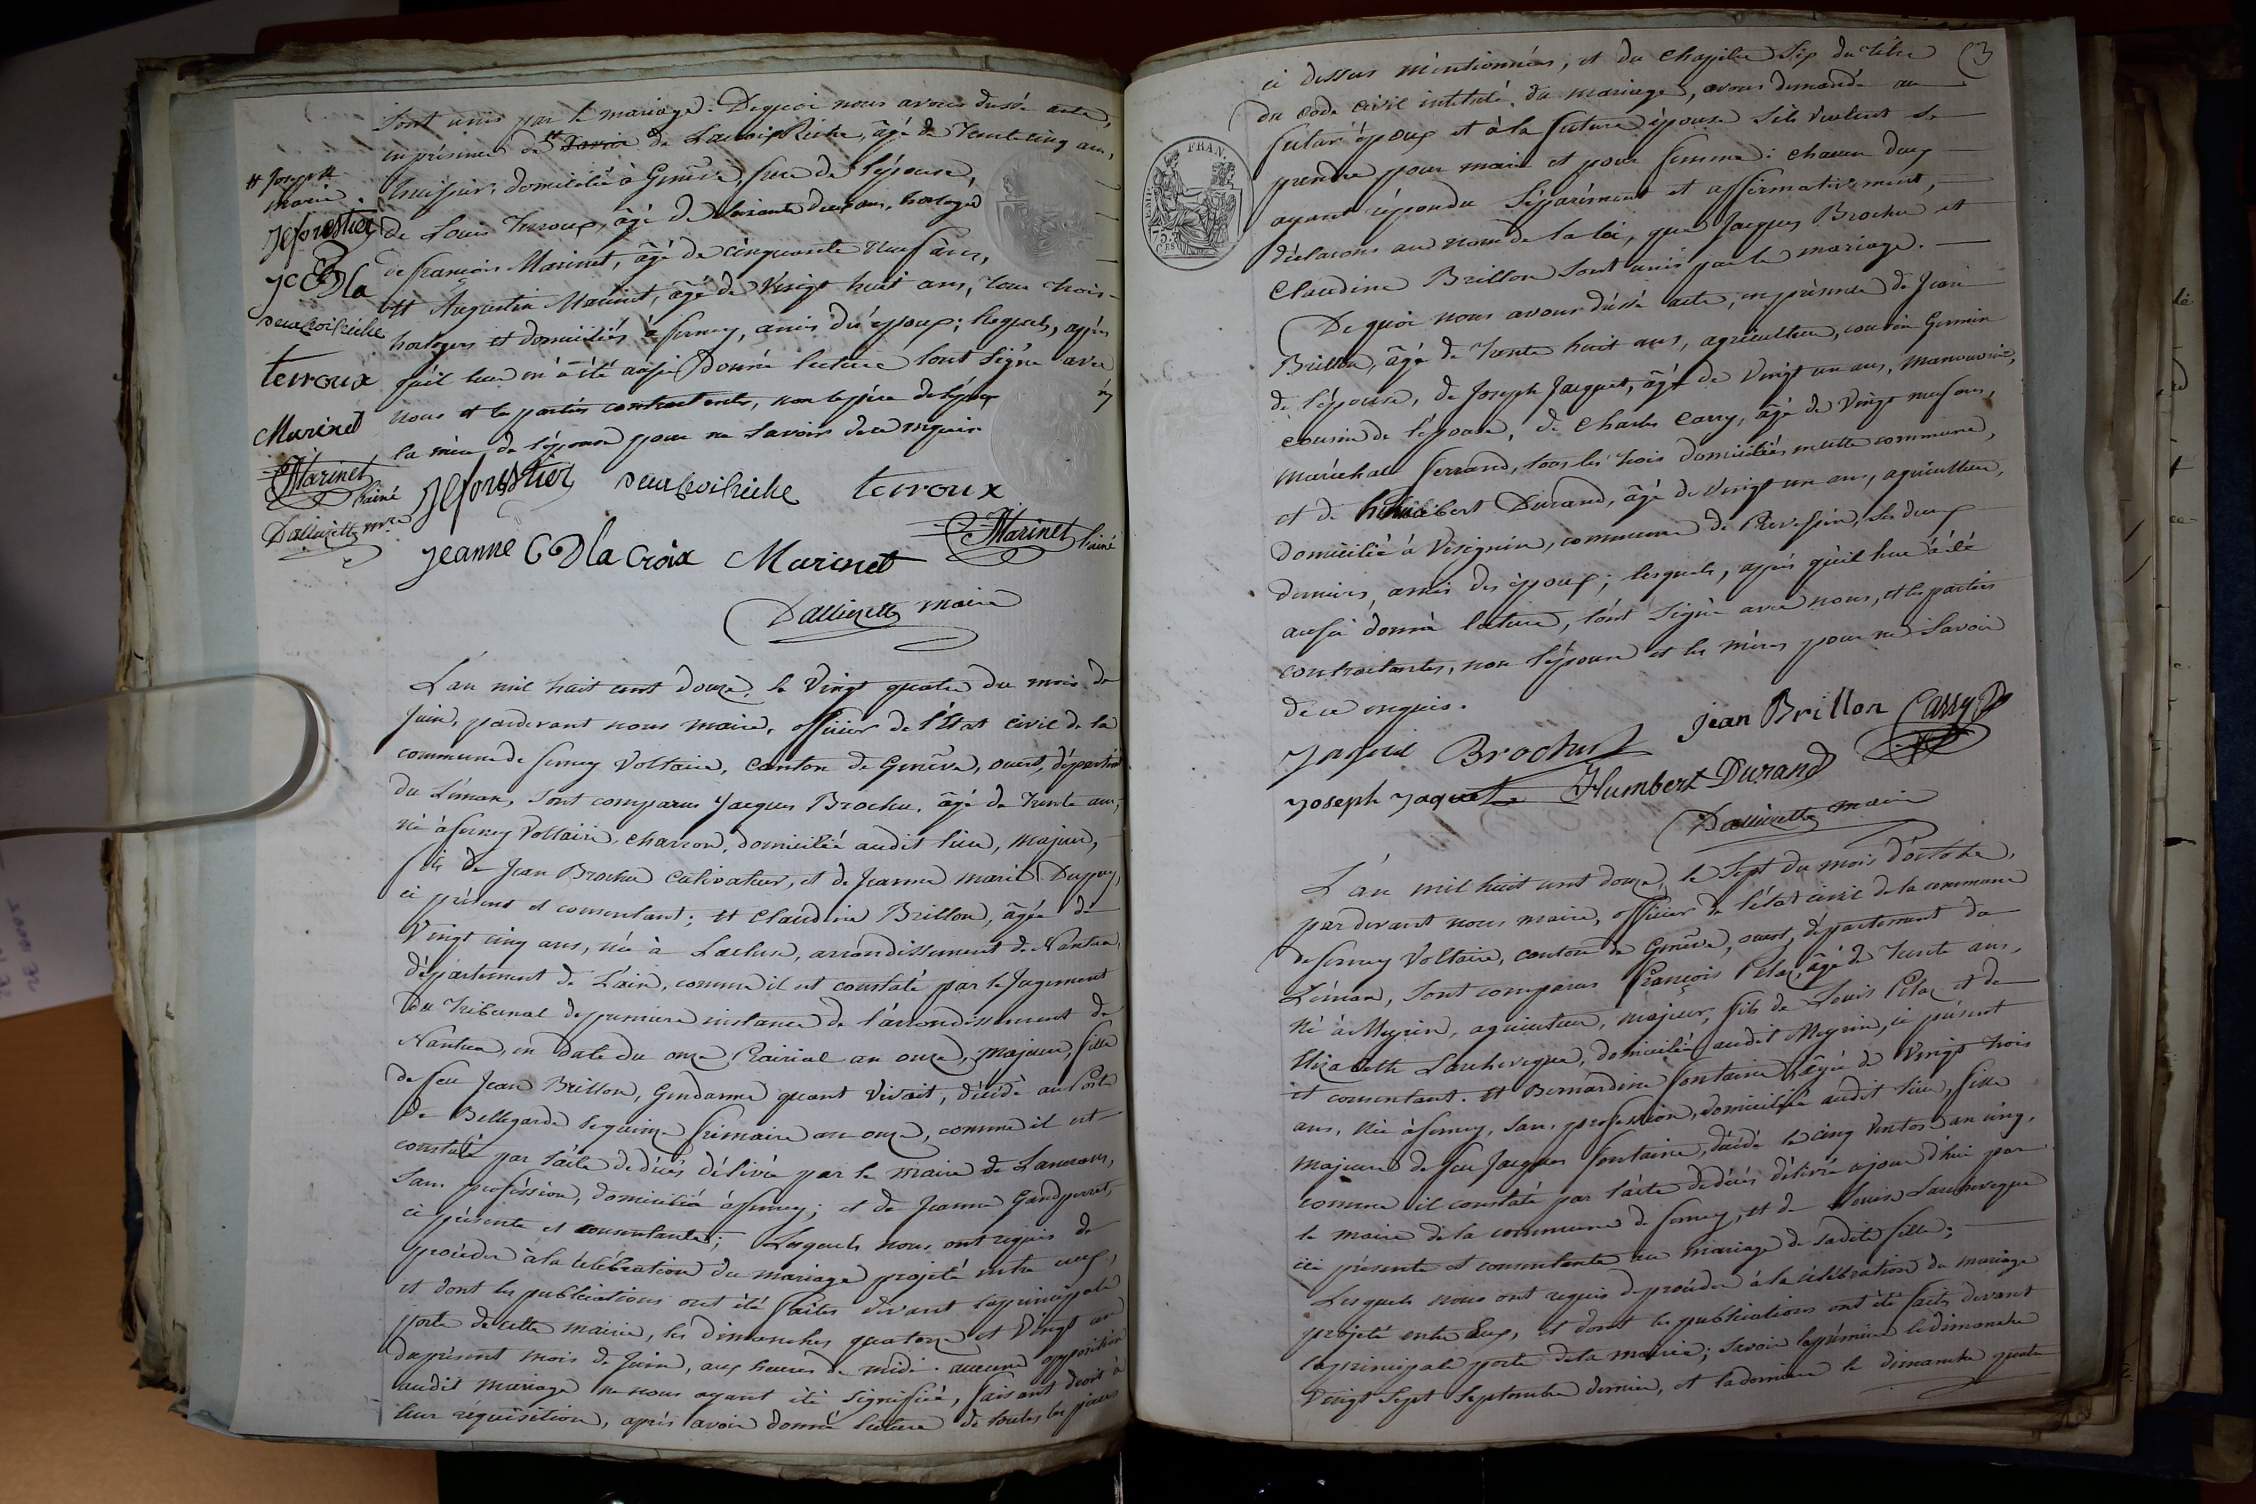 sont unis par le mariage. De quoi nous avons dressé acte,
en présence de # de Lacroix Riche, âgé de Trente cinq ans,
# Joseph
marie.
huissier, domicilié à Genève, frere de l'épouse,
Jforestier
de Louis Terroux, âgé de soixante deux ans, horloger
de françois Marinet, âgé de cinquante neuf ans,
JC Dla
et Augustin Marinet, âgé de Vingt huit ans, tous trois
horlogers et domiciliés à ferney, amis des époux; lesquels, après
terroux
qu'il leur en a été aussi Donné lecture l'ont Signé avec
nous et les parties contractantes, non le père de l'époux ny
Marinet
la mère de l'épouse pour ne Savoir de ce enquis
Marinet l'ainé
Dallizette m.re
Jforestier terroux
Jeanne C Dla Croix Marinet Marinet l'ainé
Dallizette maire
L'an mil huit cent douze, le Vingt quatre du mois de
Juin, pardevant nous maire, officier de l'Etat civil de la
commune de ferney Voltaire, canton de Genève, ouest, département
du Léman, Sont comparus Jacques Brochu, âgé de Trente ans,
né à ferney Voltaire, charron, domicilié audit lieu, majeur,
fils de Jean Brochu cultivateur, et de Jeanne marie Dupuy,
ci présents et consentant; et Claudine Brillon, âgée de
Vingt cinq ans, née à Lecluse, arrondissement de Nantua,
département de L'ain, comme il est constaté par le Jugement
du Tribunal de premiere instance de l'arrondissement de
Nantua, en date du onze Prairial an onze, majeure, fille
de feu Jean Brillon, Gendarme quant Vivait, décédé au Poste
de Bellegarde le quinze frimaire an onze, comme il est
constaté par l'acte de décès délivré par le maire de Lancrans,
Sans profession, domiciliée à ferney; et de Jeanne Gandperret,
ci présente et consentante; Lesquels nous ont requis de
procéder à la célébration du mariage projeté entre eux,
et dont les publications ont été faites devant la principale
porte de cette mairie, les dimanches quatorze et Vingt un
du présent mois de Juin, aux heures de midi. aucune opposition
audit mariage ne nous ayant été signifiée, faisant droit à
leur réquisition, après avoir donné lecture de toutes les pièces
3
ci dessus mentionnées, et du Chapitre Six du titre
du Code civil intitulé, du mariage, avons demandé au
futur époux et à la future épouse S'ils veulent se
prendre pour mari et pour femme: chacun d'eux
ayant répondu Séparément et affirmativement,
déclarons au nom de la loi, que Jacques Brochu et
Claudine Brillon Sont unis par le mariage.
FRAN.
EMP.
De quoi nous avons dressé acte, en présence de Jean
Brillon, âgé de Trente huit ans, agriculteur, cousin Germain
de l'épouse, de Joseph Jacquet, âgé de Vingt un ans, manouvrier,
cousin de l'épouse, de Charles Carry, âgé de Vingt neuf ans,
maréchal ferrand, tous les trois domiciliés en cette commune,
et de humbert Durand, âgé de Vingt un ans, agriculteur,
domicilié à Vésegnin, commune de Prévessin, les deux
derniers, amis des époux; lesquels, après qu'il leur a été
aussi donné lecture, l'ont Signé avec nous, et les parties
contractantes, non l'épouse et les mères pour ne Savoir
de ce enquis.
Jean Brillon Carry
Brochu
Joseph Jaquet Humbert Durand
Dallizette maire
L'an mil huit cent douze, le Sept du mois d'octobre,
pardevant nous maire, officier de l'état civil de la commune
de ferney Voltaire, canton de Genève, ouest, département du
Léman, Sont comparus François Pelaz, âgé de Trente ans,
né à Meyrin, agriculteur, majeur, fils de Louis Pelaz et de
Elizabeth Larcheveque, domicilié audit Meyrin, ci présent
et consentant. et Bernardine fontaine, âgée de Vingt trois
ans, née à ferney, Sans profession, domiciliée audit lieu, fille
majeure de feu Jacques fontaine, décédé le cinq Ventose an cinq,
comme il constaté par l'acte de décès délivré ajourd'hui par
le maire de la commune de ferney, et de Louise Larcheveque
ici présente et consentante au mariage de sadite fille;
Lesquels nous ont requis de procéder à la célébration du mariage
projeté entre Eux, et dont les publications ont été faites devant
la principale porte de la mairie; savoir la première le dimanche
Vingt Sept Septembre dernier, et la derniere le dimanche quatre